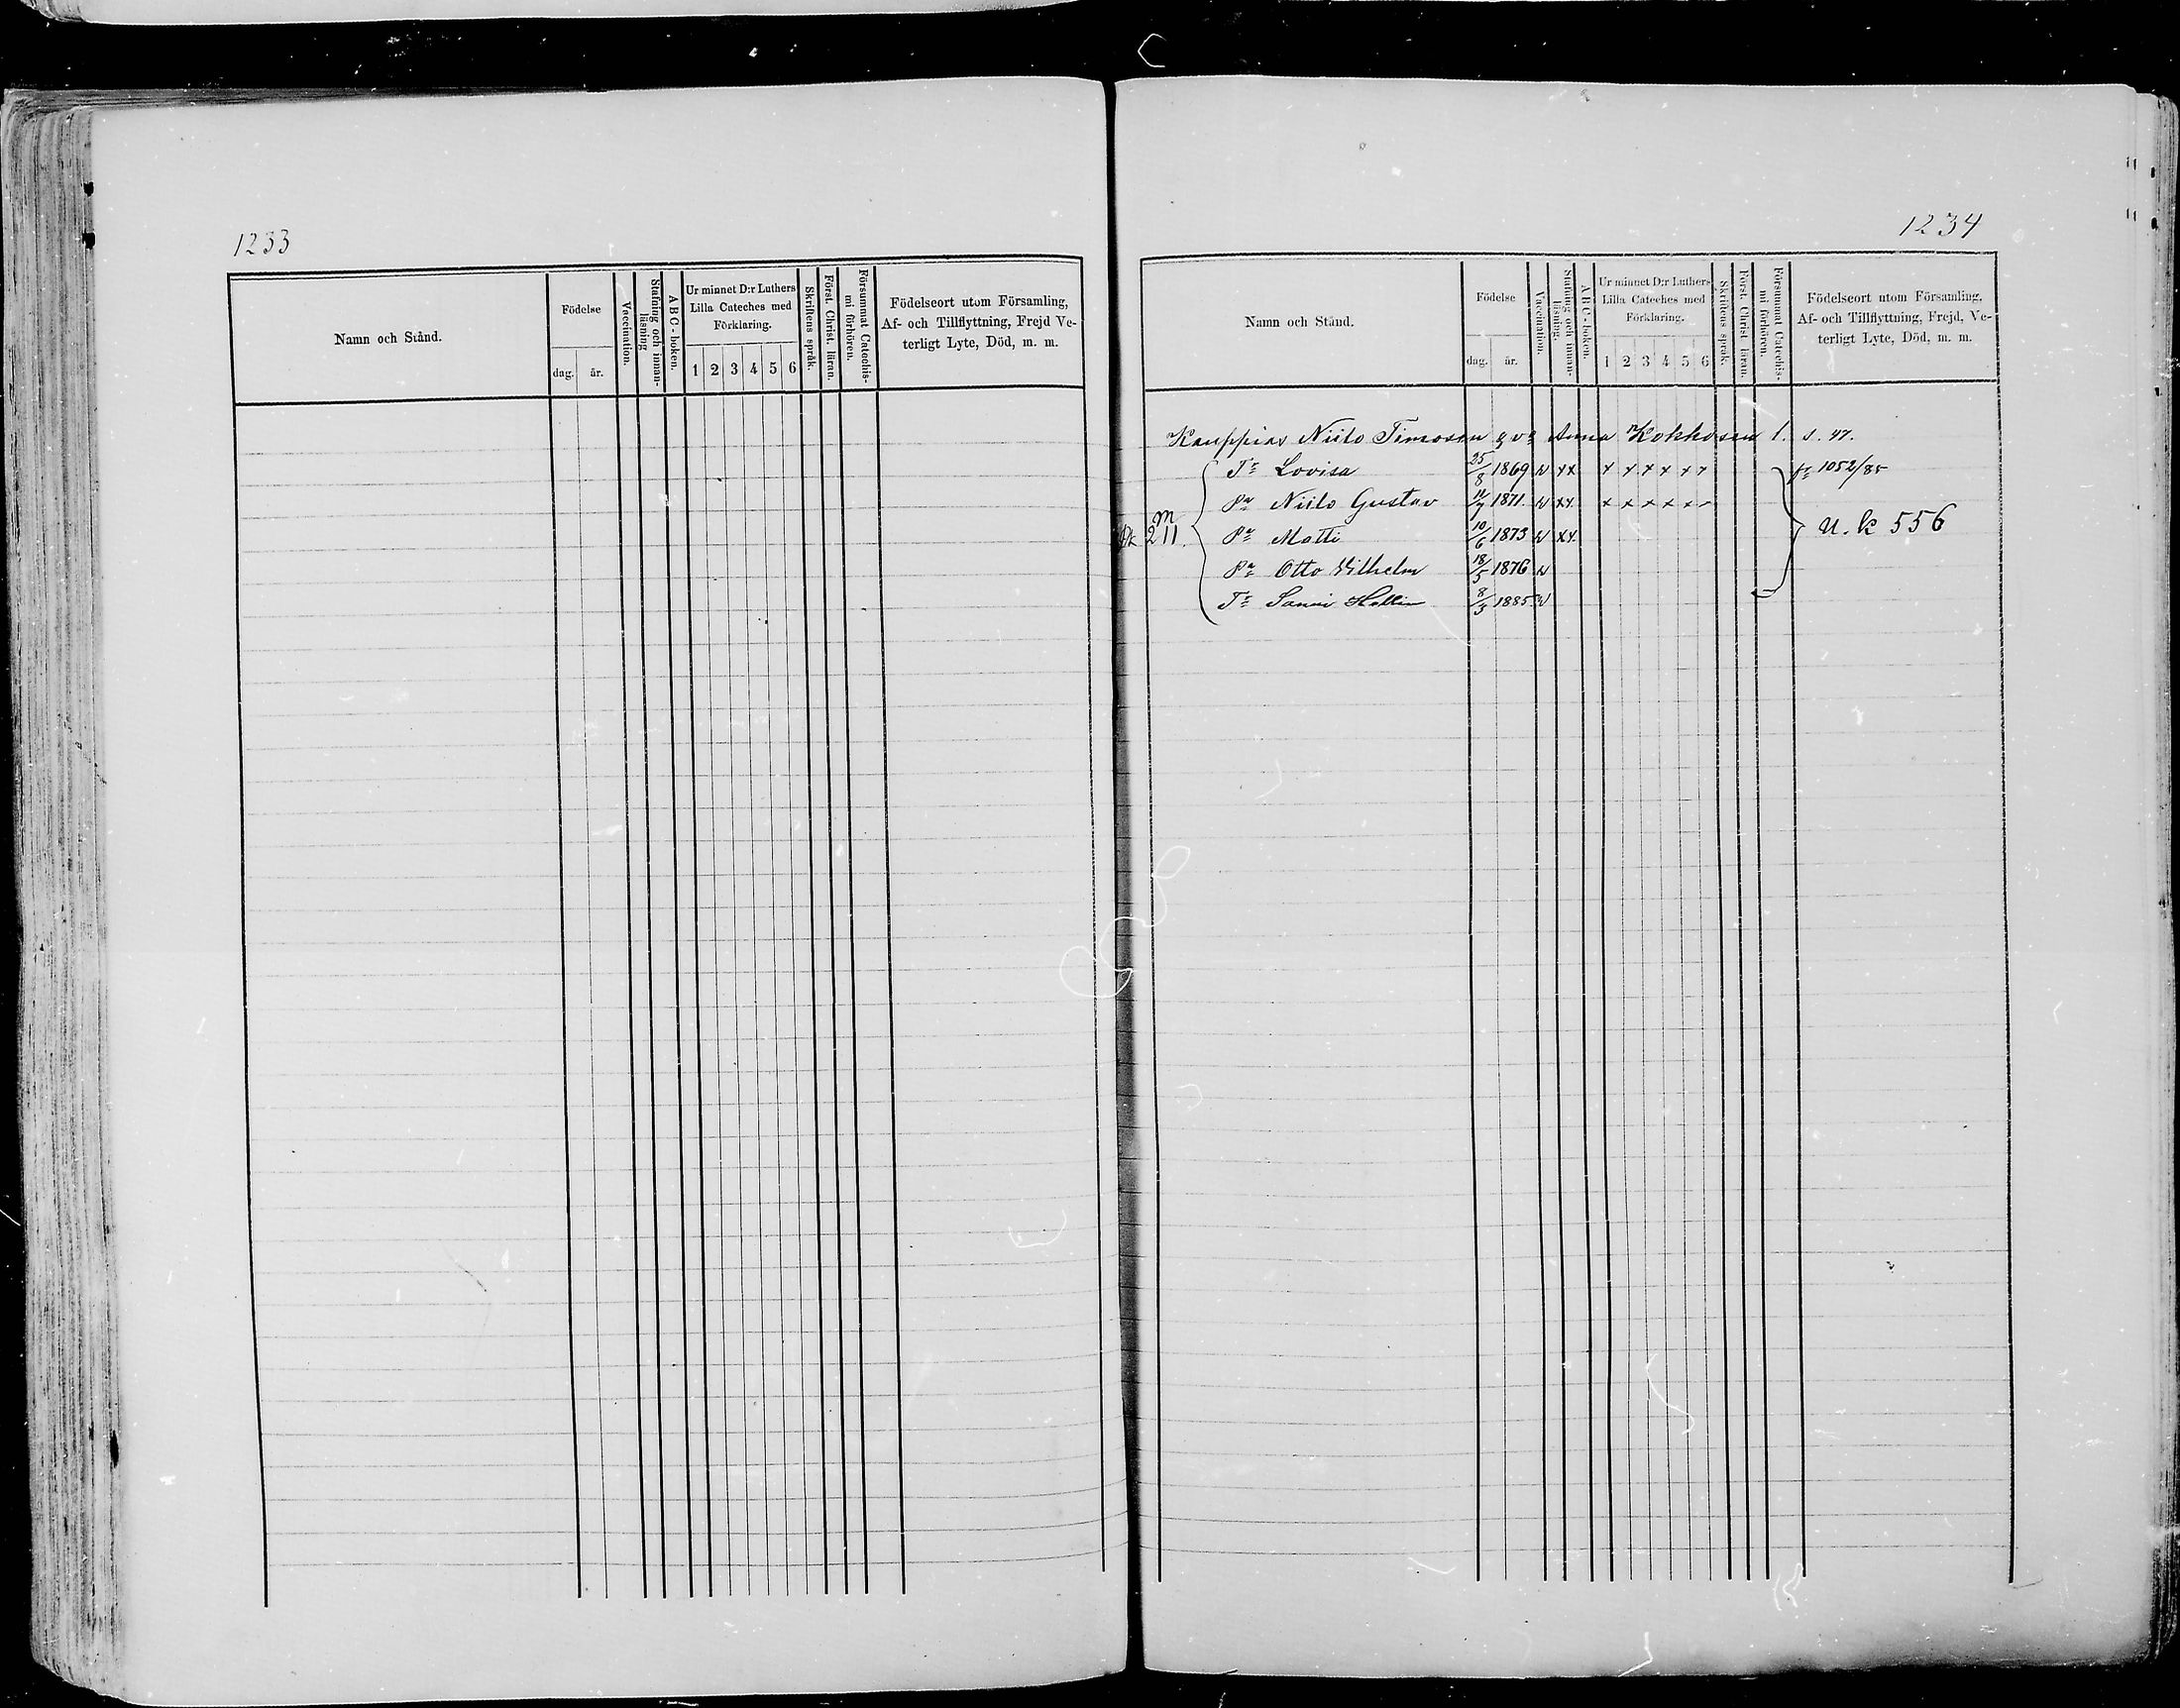 1233
Namn och Stånd.
Födelse
dag.
år.
Vaccination.
Stafning och innan-
läsning
ABC-boken.
Ur minnet D:r Luthers
Lilla Cateches med
Förklaring.
1 2 3 4 5 6
Skriftens språk.
Först. Christ. läran.
Försummat Catechis-
mi förhören.
Födelseort utom Församling,
Af- och Tillflyttning, Frejd Ve-
terligt Lyte, Död, m. m.
1234
Namn och Stånd.
Födelse
dag.
år.
Vaccination.
Stafning och innan-
läsning.
ABC-boken.
Ur minnet D:r Luthers
Lilla Cateches med
Förklaring.
1 2 3 4 5 6
Skriftens språk.
Först. Christ läran.
Försummat Catechis-
mi förhören.
Födelseort utom Församling,
Af- och Tillflyttning, Frejd, Ve-
terligt Lyte, Död, m. m.
Kauppias Niilo Timosen Anna Kokkosen l. s. 47.
Tr Lovisa 25/8 1869 v xx x x x x x x 1052/85
Pa Niilo Gustav 11/7 1871. v xx. x x x x x x
m
211. Pa Matti 10/6 1873 v xx. u. k 556
Pa Otto Vilhelm 18/5 1876 v
Tr 8/3 1885 v